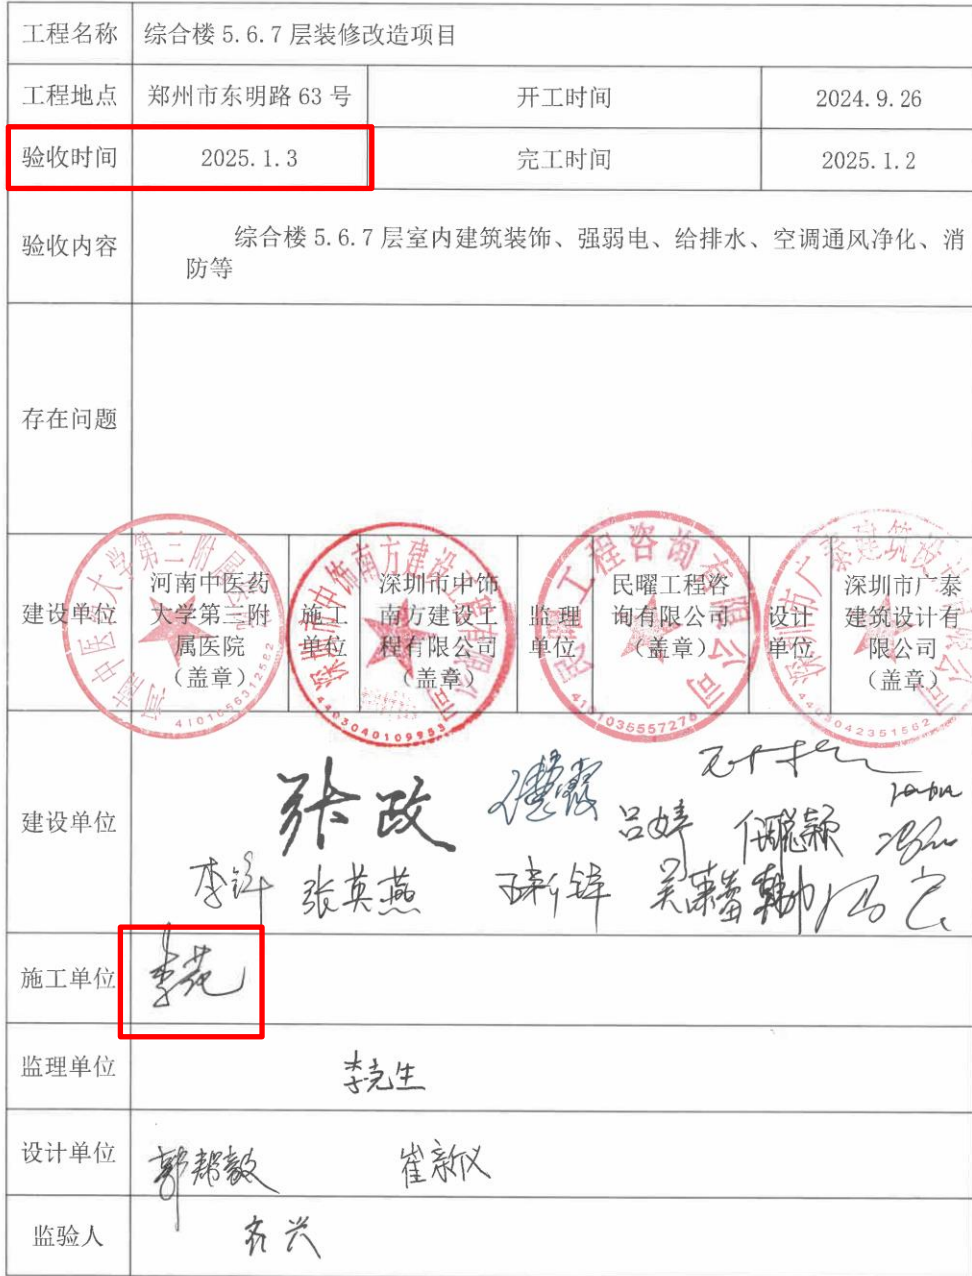 工程名称 综合楼 5.6.7 层装修改造项目
工程地点 郑州市东明路 63 号 开工时间 2024.9.26
验收时间 2025.1.3 完工时间 2025.1.2
验收内容 综合楼 5.6.7 层室内建筑装饰、强弱电、给排水、空调通风净化、消
防等
存在问题
建设单位
河南中医药
大学第三附
属医院
（盖章）
施工
单位
深圳市中饰
南方建设工
程有限公司
（盖章）
监理
单位
民曜工程咨
询有限公司
（盖章）
设计
单位
深圳市广泰
建筑设计有
限公司
（盖章）
4403040109953
4101035557276
建设单位 张政
吕婷
李锋 张英燕
施工单位 李苑
监理单位 李克生
设计单位 郭帮毅 崔新仪
监验人 齐兴